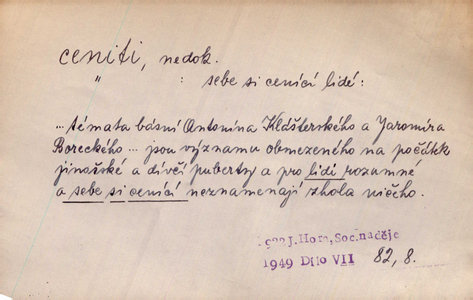 ceniti, nedok.
" : sebe si cenící lidé:
... témata básní Antonína Klášterského a Jaromíra
Boreckého ... jsou významu obmezeného na počátk
jinošské a dívčí puberty a pro lidi rozumné
a sebe si cenící neznamenají zhola ničeho.
J. Hora, Soc. naděje
1949 Dílo VII 82, 8.